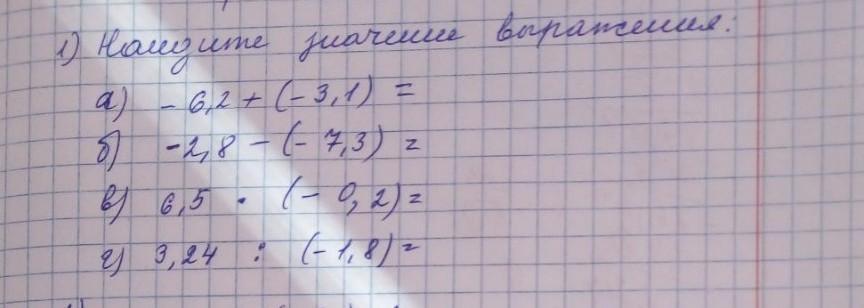 1) Найдите значение выражения:
а) - 6,2 + (- 3,1) =
б) -2,8 - (- 7,3) =
в) 6,5 · (- 0,2) =
г) 3,24 : (- 1,8) =